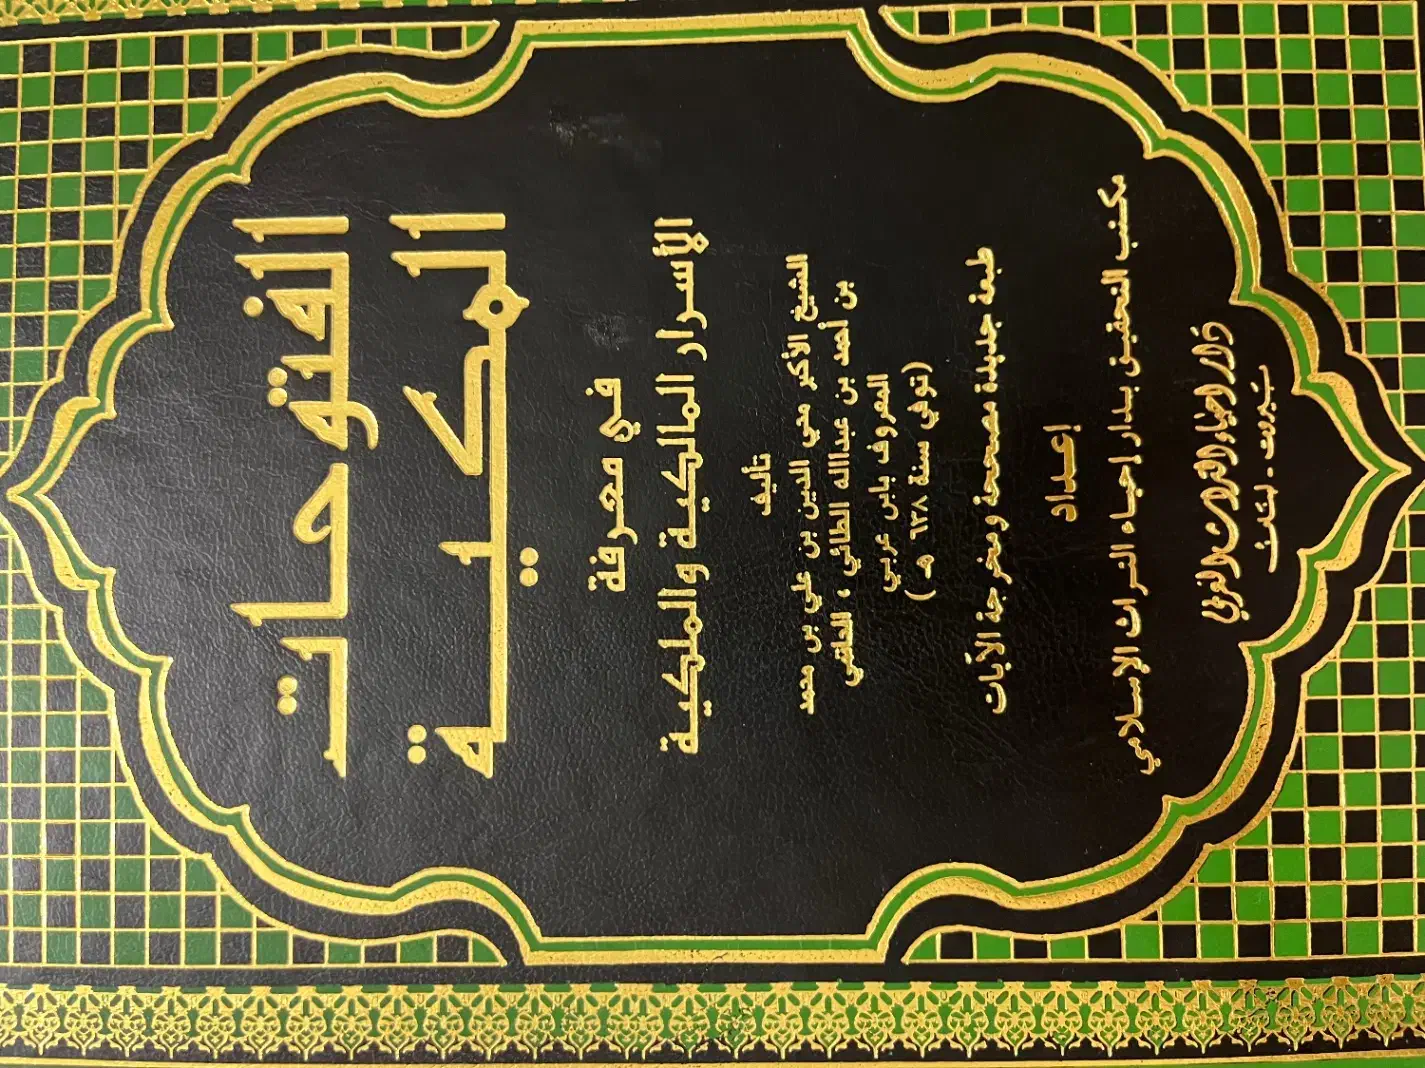 الفتوحات
المكية
في معرفة
الأسرار المالكية والملكية
تأليف
الشيخ الأكبر محي الدين بن علي بن محمد
بن أحمد بن عبدالله الطائي ، الحاتمي
المعروف بابن عربي
(توفي سنة ٦٣٨ هـ)
طبعة جديدة مصححة ومخرجة الآيات
إعداد
مكتب التحقيق بدار إحياء التراث الإسلامي
دار احياء التراث العربي
بيروت - لبنان